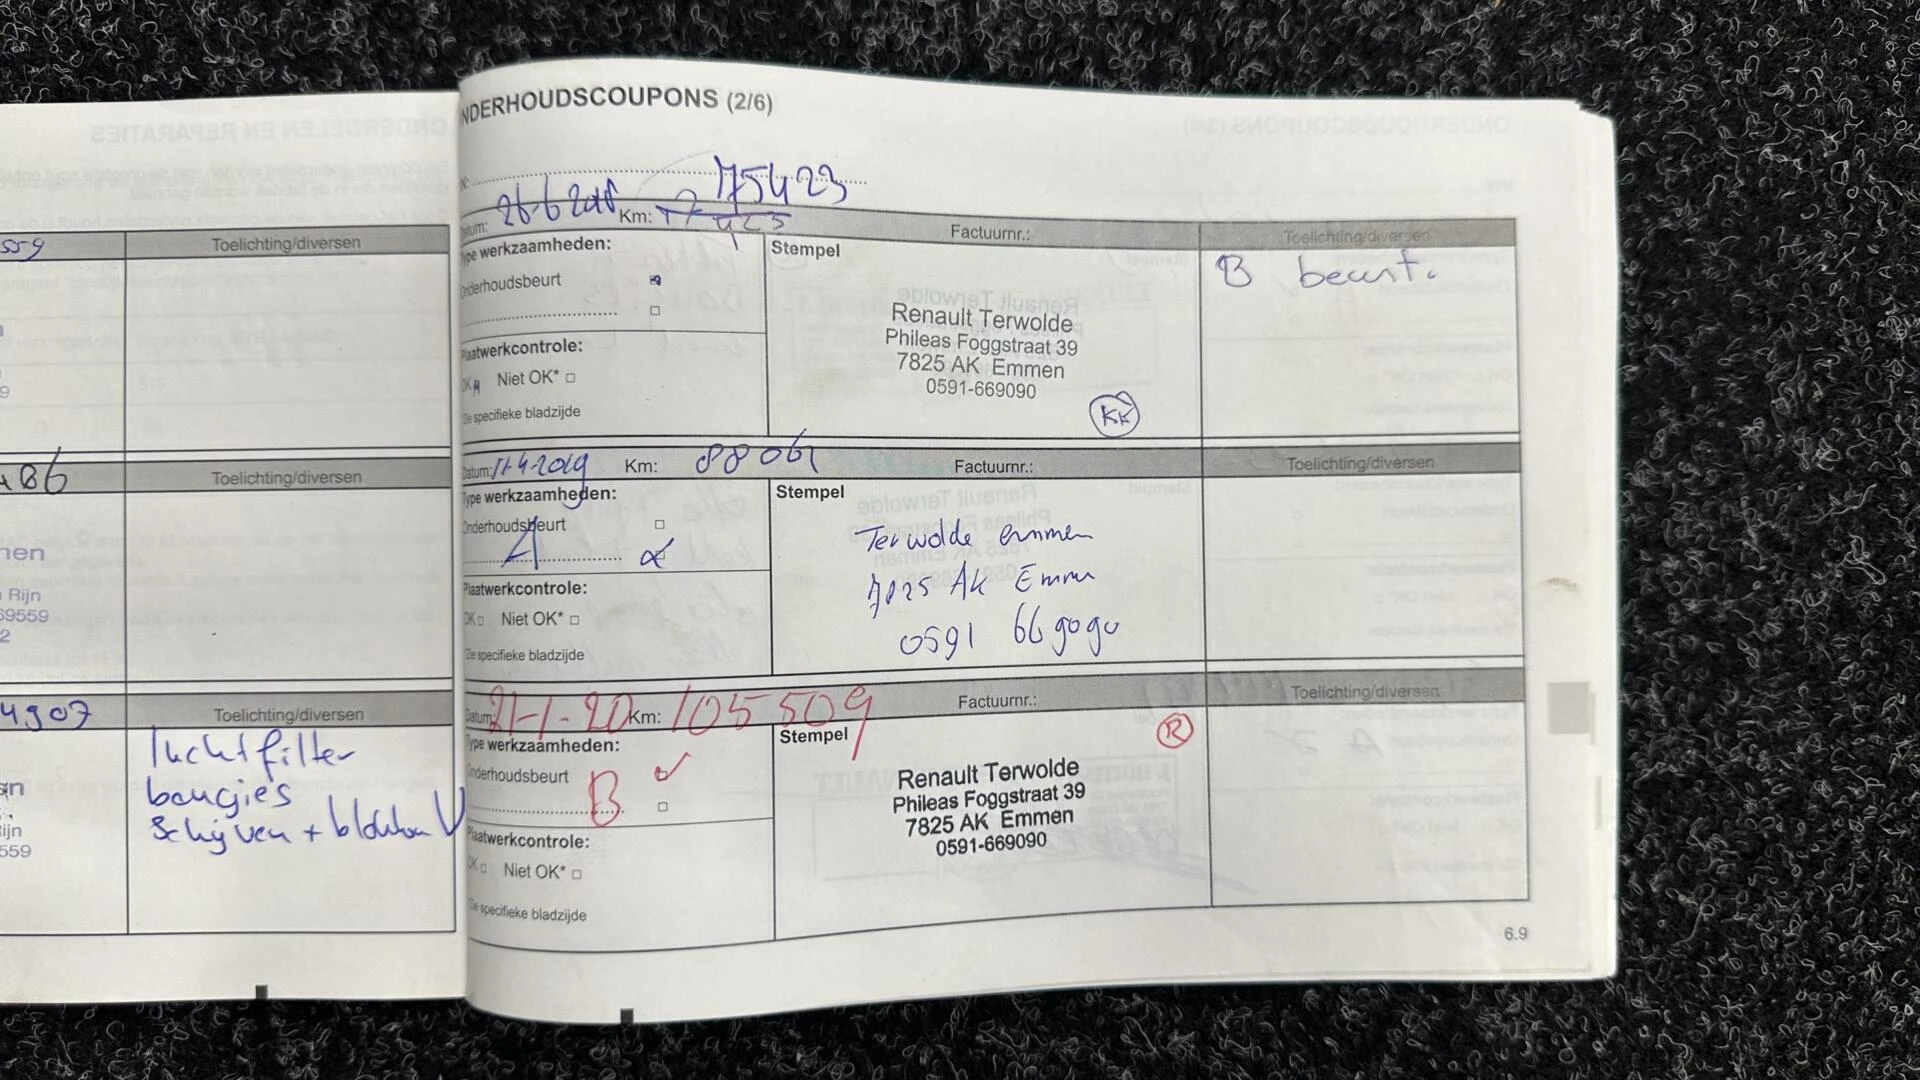 559
Toelichting/diversen
9
486
Toelichting/diversen
nen
Rijn
69559
2
4907
Toelichting/diversen
luchtfilter
bougies
Schijven + blokken V
ijn
559
NDERHOUDSCOUPONS (2/6)
N:
75423
Datum: 26-6 2018 Km: 423
Factuurnr.:
Toelichting/diversen
Type werkzaamheden:
Stempel
B beurt.
Onderhoudsbeurt
Renault Terwolde
Phileas Foggstraat 39
7825 AK Emmen
0591-669090
KK
Plaatwerkcontrole:
OK Niet OK*
*Zie specifieke bladzijde
Datum: 11-4-2019 Km: 88061
Factuurnr.:
Toelichting/diversen
Type werkzaamheden:
Stempel
Onderhoudsbeurt
A
Terwolde emmen
7825 AK Emmen
0591 669090
Plaatwerkcontrole:
OK Niet OK*
*Zie specifieke bladzijde
Datum: 21-1-20 Km: 105509
Factuurnr.:
Toelichting/diversen
Type werkzaamheden:
Stempel
R
Onderhoudsbeurt
B
Renault Terwolde
Phileas Foggstraat 39
7825 AK Emmen
0591-669090
Plaatwerkcontrole:
OK Niet OK*
*Zie specifieke bladzijde
6.9